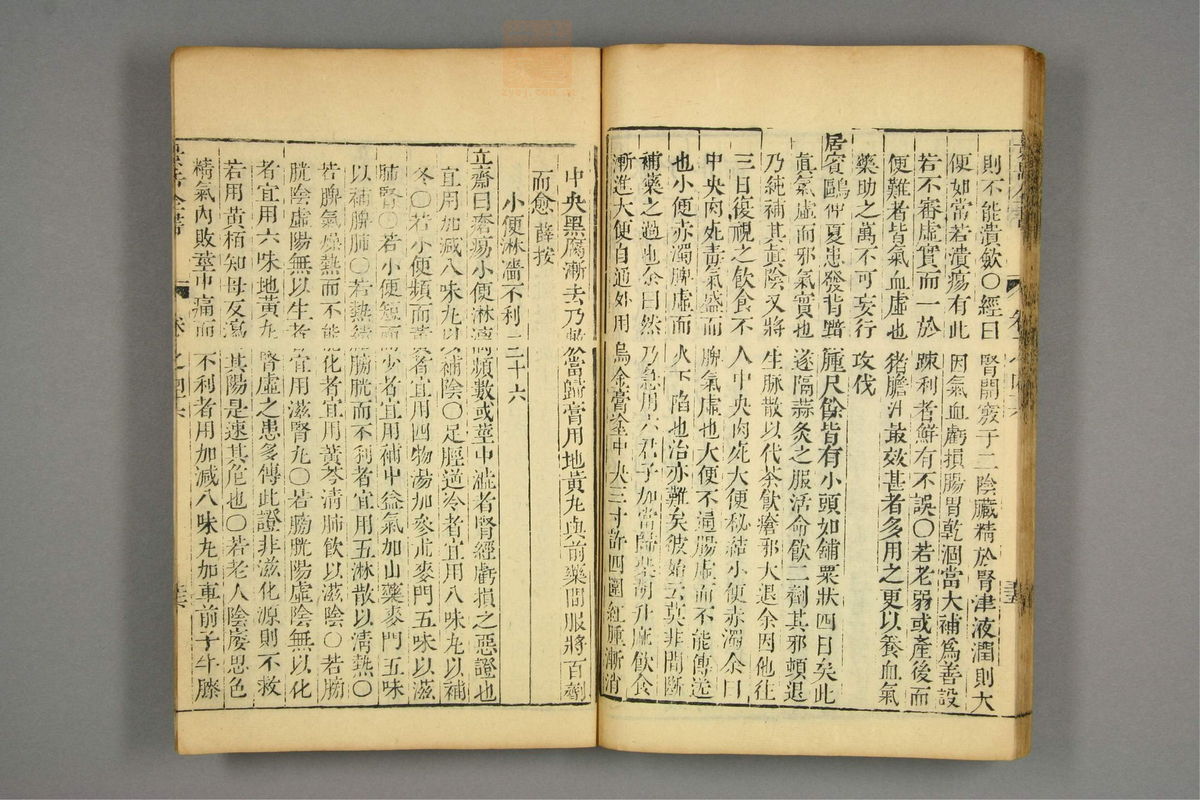 則不能潰斂○經曰腎開竅于二陰臟精於腎津液潤則大
便如常若潰瘍有此因氣血虧損腸胃乾涸當大補爲善設
若不審虛實而一於踈利者鮮有不誤○若老弱或產後而
便難者皆氣血虛也猪膽汁最效甚者多用之更以養血氣
藥助之萬不可妄行攻伐
居賓鷗仲夏患發背黯腫尺餘皆有小頭如鋪粟狀四日矣此
眞氣虛而邪氣實也遂隔蒜灸之服活命飲二劑其邪頓退
乃純補其眞陰又將生脉散以代茶飲瘡邪大退余因他往
三日復視之飲食不入中央肉死大便秘結小便赤濁余曰
中央肉死毒氣盛而脾氣虛也大便不通腸虛而不能傳送
也小便赤濁脾虛而火下陷也治亦難矣彼始云莫非間斷
補藥之過也余曰然乃急用六君子加當歸柴胡升麻飲食
漸進大便自通外用烏金膏塗中央三寸許四圍紅腫漸消
中央黑腐漸去乃敷當歸膏用地黃丸與前藥間服將百劑
而愈 薛按
小便淋澀不利二十六
立齋曰瘡瘍小便淋漓頻數或莖中澀者腎經虧損之惡證也
宜用加減八味丸以補陰○足脛逆冷者宜用八味丸以補
冬○若小便頻而黃者宜用四物湯加參朮麥門五味以滋
肺腎○若小便短而少者宜用補中益氣加山藥麥門五味
以補脾肺○若熱結膀胱而不利者宜用五淋散以淸熱○
若脾氣燥熱而不能化者宜用黃芩淸肺飲以滋陰○若膀
胱陰虛陽無以生者宜用滋腎丸○若膀胱陽虛陰無以化
者宜用六味地黃丸腎虛之患多傳此證非滋化源則不救
若用黃栢知母反瀉其陽是速其危也○若老人陰痿思色
精氣內敗莖中痛而不利者用加減八味丸加車前子牛膝